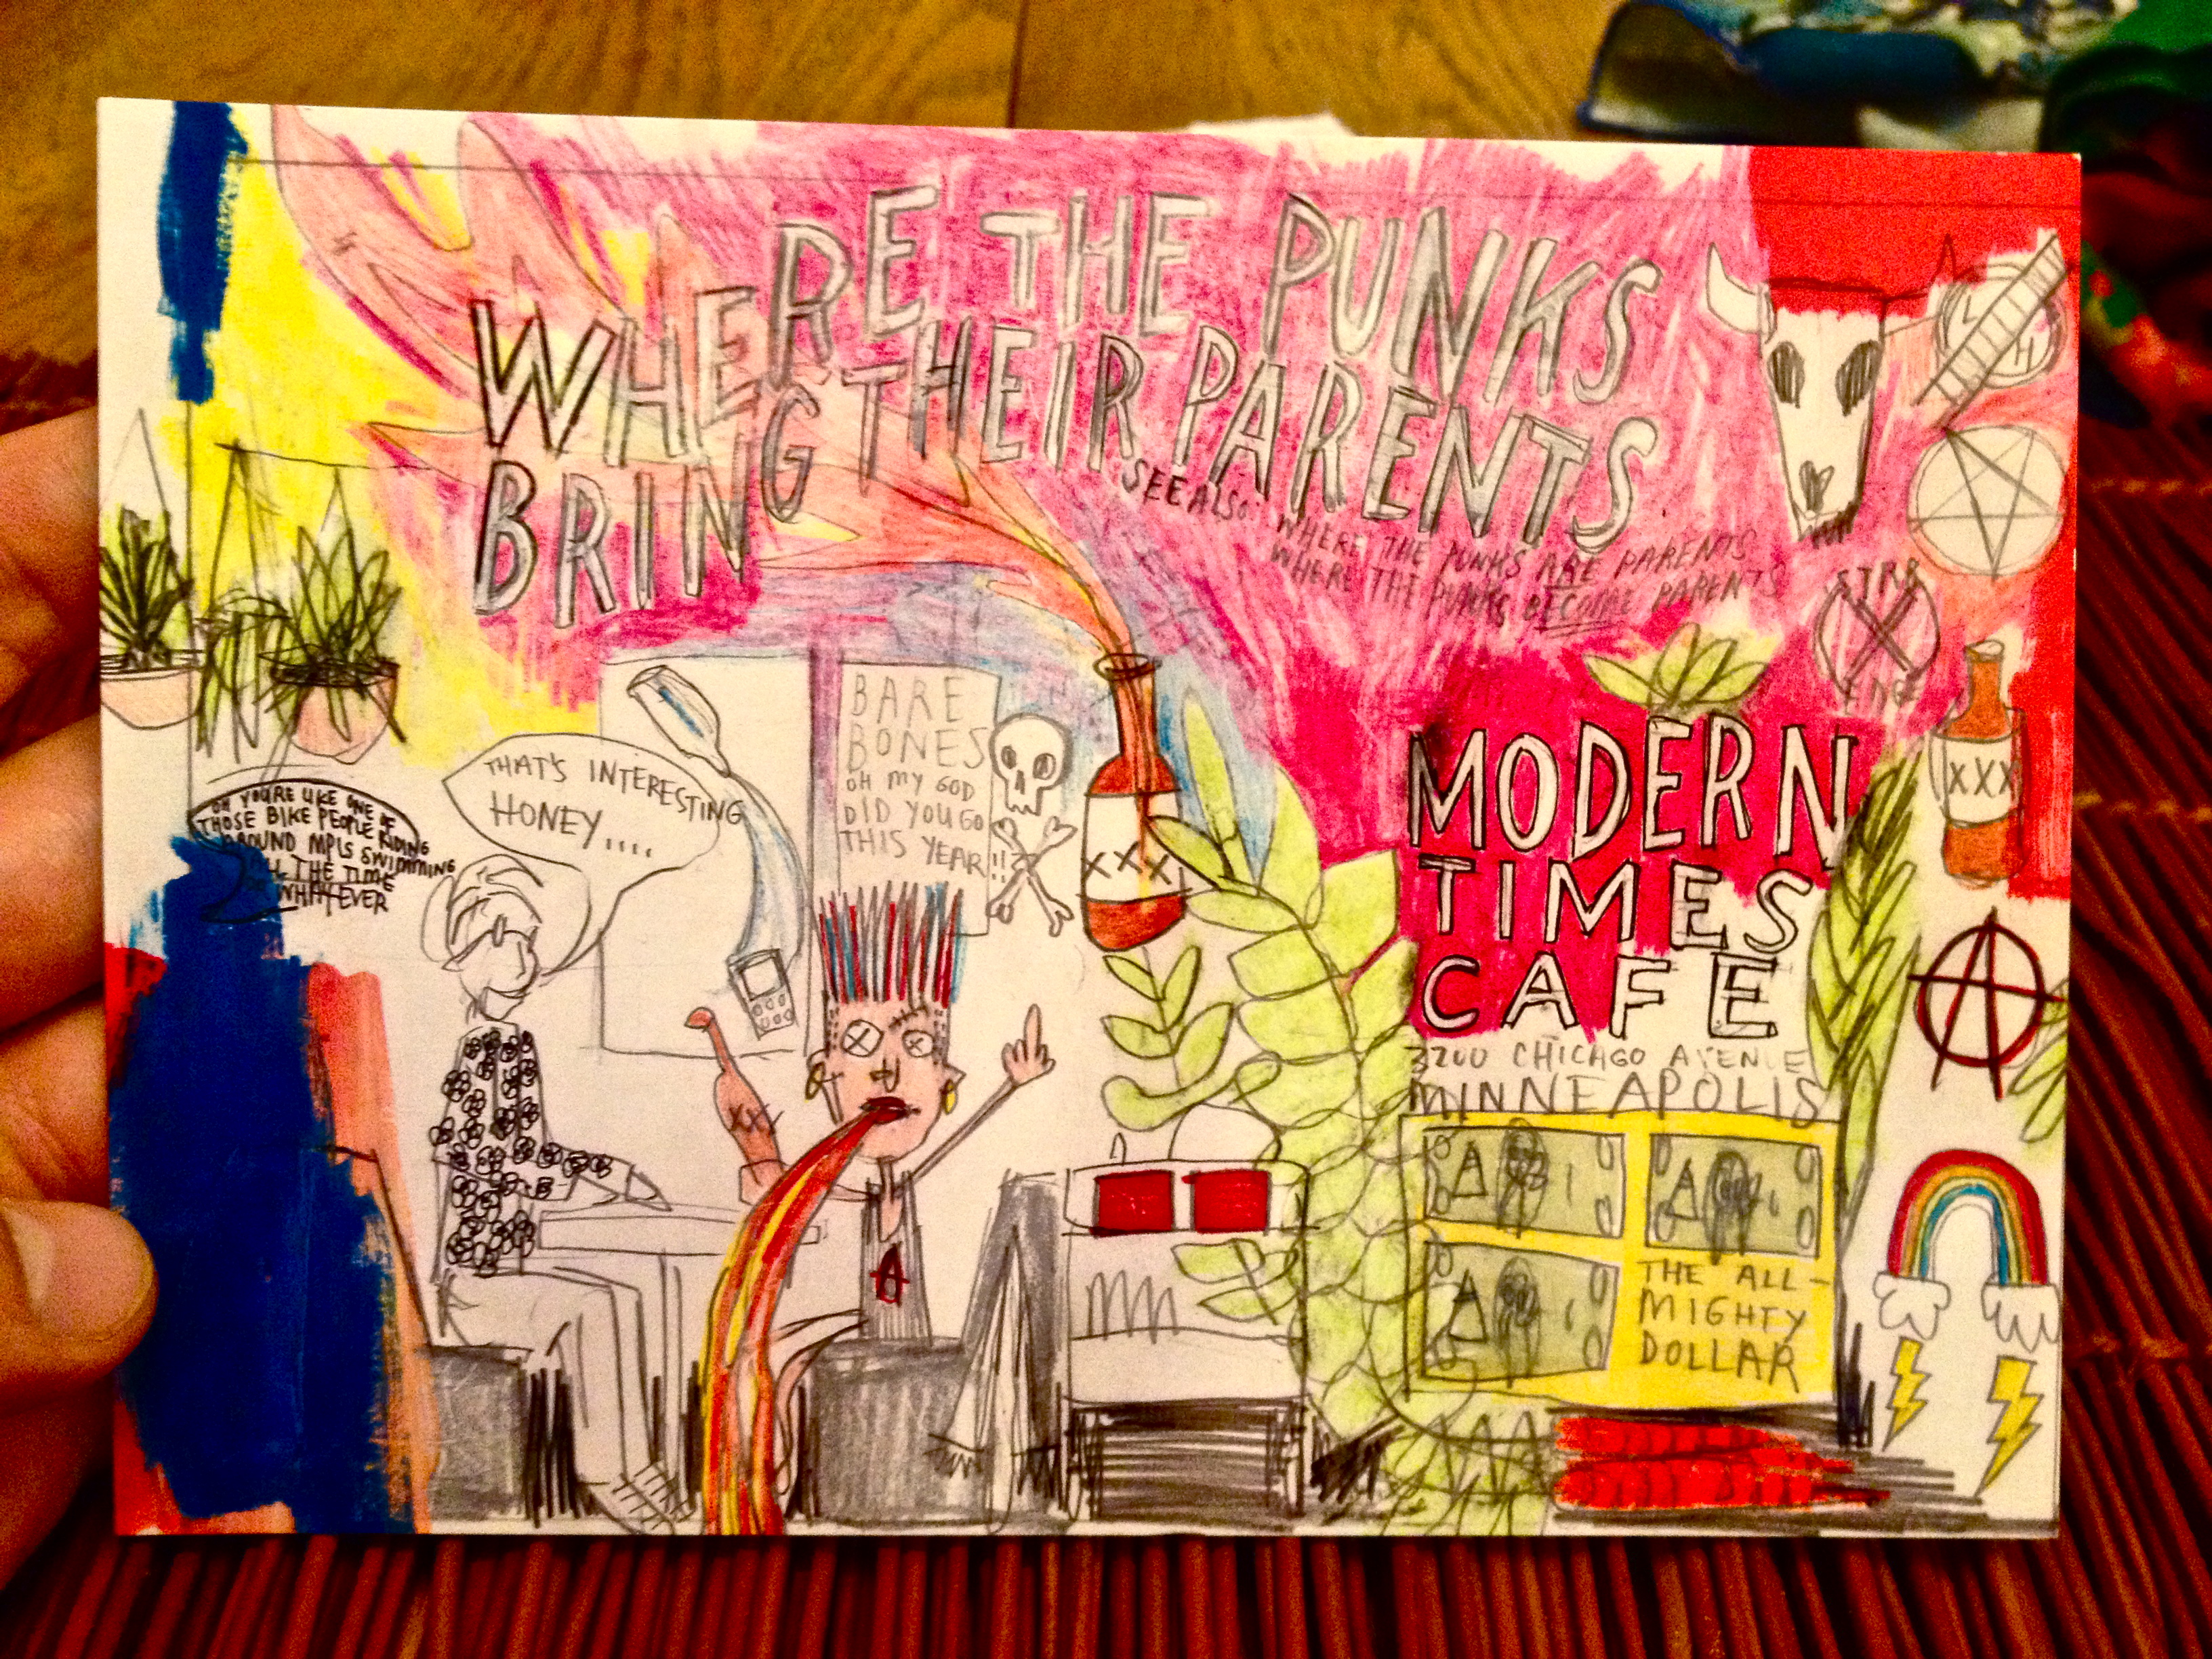 WHERE THE PUNKS
BRING THEIR PARENTS
SEE ALSO: WHERE THE PUNKS ARE PARENTS
WHERE THE PUNKS BECOME PARENTS
BARE
BONES
OH MY GOD
DID YOU GO
THIS YEAR!!?
THAT'S INTERESTING
HONEY....
OH YOU'RE LIKE ONE OF
THOSE BIKE PEOPLE RIDING
AROUND MPLS SWIMMING
ALL THE TIME
OR WHATEVER
XXX
XX
A
STR8
X
EDGE
XXX
MODERN
TIMES
CAFE
3200 CHICAGO AVENUE
MINNEAPOLIS
A
THE ALL-
MIGHTY
DOLLAR